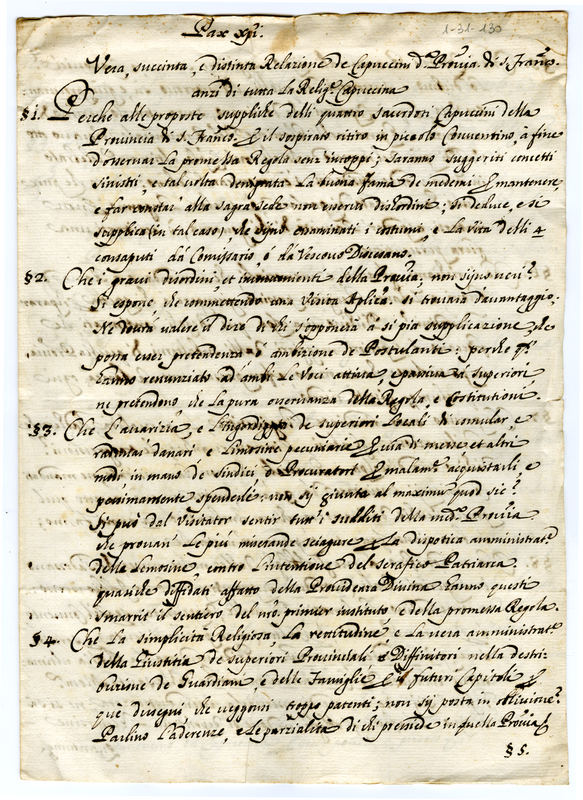 Pax Xpi.
1-31-130
Vera, succinta, e distinta Relazione de Capuccini d.ª Prou.ª di S. Franc.º
anzi di tutta La Relig.e Capuccina
§ 1. Perche alle proposte suppliche delli quattro sacerdoti Capuccini della
Prouincia di S. Franc.º il sospirato ritiro in piccolo Conuentino, à fine
d'osseruar La promessa Regola senz'intoppi; saranno suggeriti concetti
sinistri, e tal uolta denigrata La buona fama de medemi mantenere,
e far constar alla sagra sede non esserui disordini; si deduce, e si
supplica (in tal caso) che sijno esaminati i costumi, e La Vita delli 4
consaputi da Comissario, ó da Vescouo Diocesano.
§ 2. Che i graui disordini, et della Prou.ª, non sijno ueri?
Si espone che commettendo una Visita Aplica, si trouarà d'auantaggio.
Ne dourà ualere il dire di chi s'opponerà à si pia supplicazione, che
possa esser pretendenza ó ambizione de Postulanti: perche
hanno renunziato ad ambe Le Voci attiua, e passiua à superiori,
ne pretendono che La pura osseruanza della Regola, e Costitutioni.
§ 3. Che L'auarizia, e L'ingordigia de superiori Locali di comular e
radunar danari e Limosine pecuniarie uia di messe et altri
modi in mano de sindici ó Procuratori malam.te acquistarli, e
pessimamente spenderli: non sij giunta al maximum quod sic?
Si può dal Visitator sentir tutt'i sudditi della med.ª Prou.ª
che prouano Le piu miserande sciagure La dispotica amministrat.e
delle Lemosine contro L'intentione del serafico Patriarca.
quasiche diffidati affatto della Prouidenza Diuina hanno questi
smarrit'il sentiero del nrō primier instituto e della promessa Regola.
§ 4. Che La simplicità Religiosa, La rettitudine, e La uera amministrat.e
della Giustitia de superiori Prouinciali é Diffinitori nella destri-
buzione de Guardiani e delle Famiglie il futuri Capitoli
que disegni che ueggonsi troppo patenti; non sij posta in obliuione?
Paulino Laderenze, e Le parzialità di chi presiede in quella Prou.ª
§ 5.